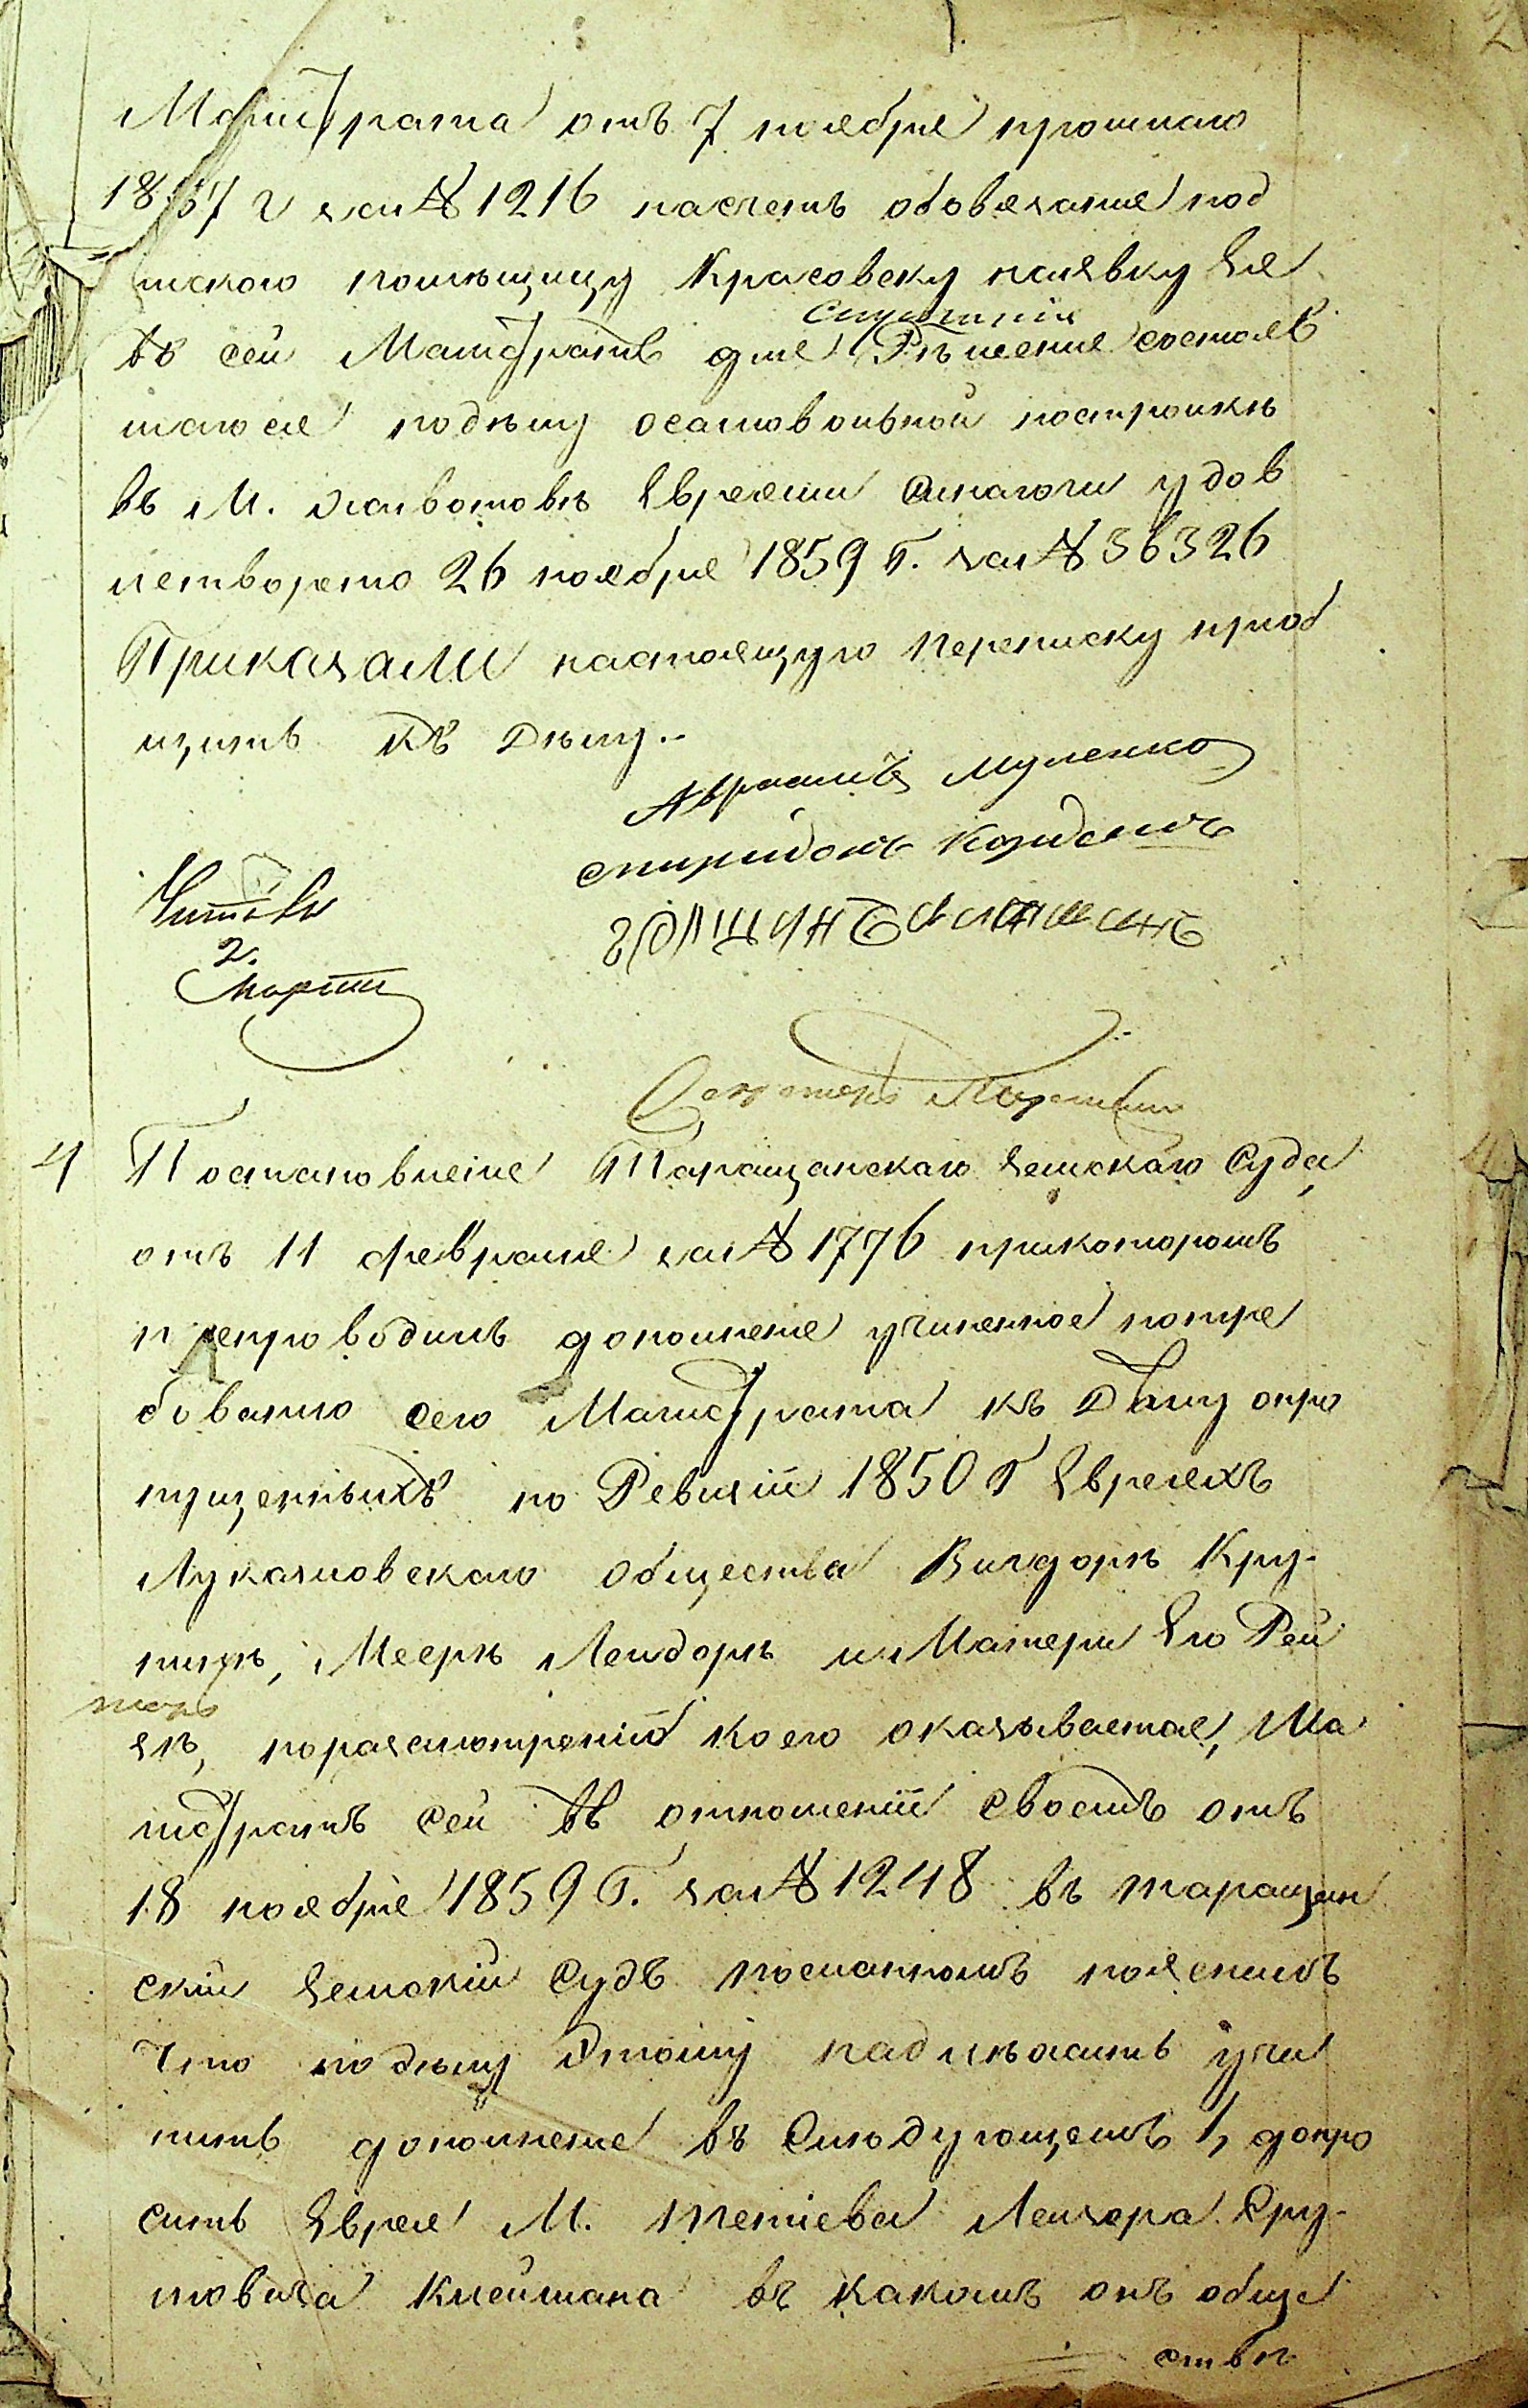 Магистрата отъ 7 ноября прошлаго
1857 г за № 1216 насчетъ обовязания под
пискою помѣщицу Красовску наявку Ея
въ сей Магистратъ для Слушания Рѣшения состояв
шагося подѣлу осамовольной построикѣ
въ М. Животовѣ Евреями Синагоги удов
летворено 26 ноября 1859 Г. за № 36326
Приказали настоящую переписку приоб
щить къ Дѣлу.-
Авраамъ Муленко
спиридонъ
Читалъ
2.
Марта
Секретарь
4 Постановление Таращанскаго Земскаго Суда
отъ 11 февраля за № 1776 прикоторомъ
препроводилъ дополнение учиненное потре
бованию сего Магистрата къ Дѣлу опро
пущенныхъ по Ревизіи 1850 Г Евреяхъ
Лукашовскаго Общества Вигдорѣ Кру-
пникѣ, Меерѣ Лейдорѣ и Матери Его Рей
зѣ, поразсмотреніи коего оказывается, Ма
гистратъ сей въ отношеніи своемъ отъ
18 ноября 1859 Г. за № 1248 въ таращан
скій Земскій Судъ посланномъ пояснилъ
Что подѣлу Этому надлѣжитъ учи
нить дополнение въ Слюдующемъ 1, допро
сить Еврея М. тетіева Лейзера Сру-
левича Клеймана въ какомъ онъ обще
ствѣ